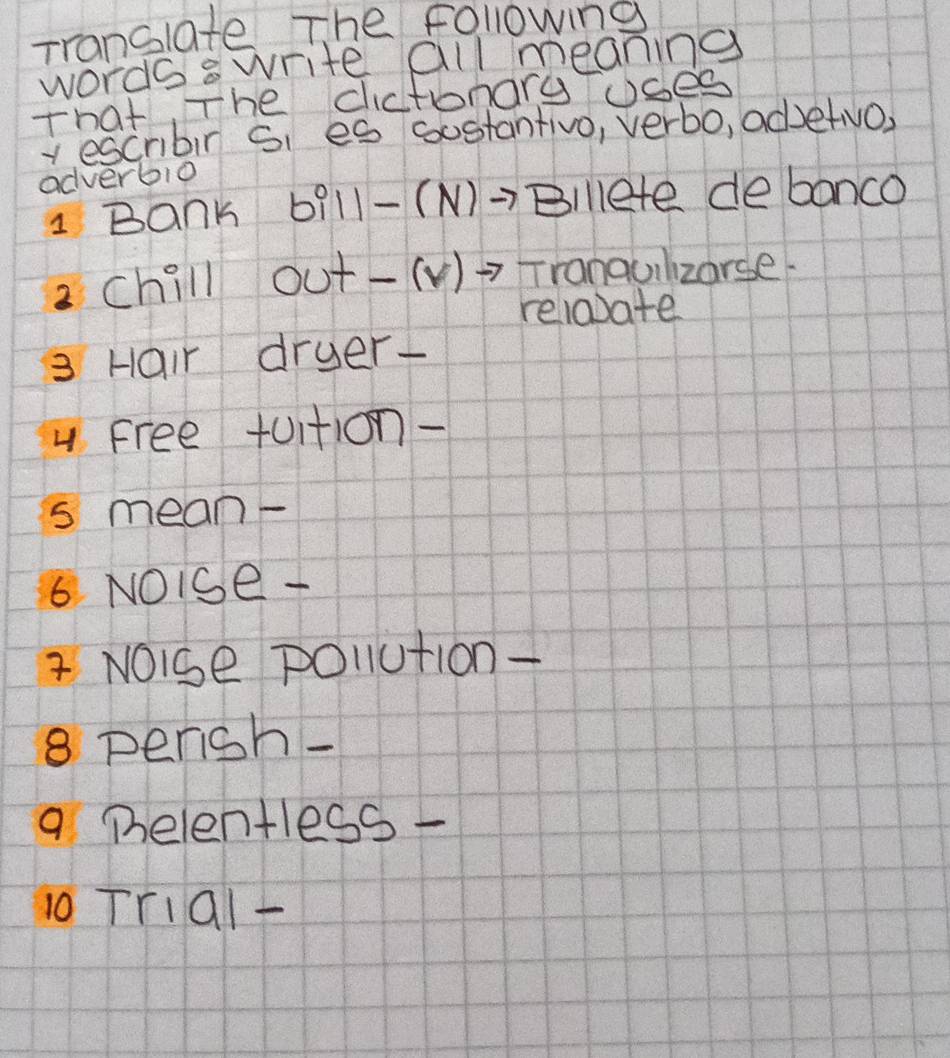 Translate The Following
words: write all meaning
That The dictionary uses
y escribir si es sustantivo, verbo, adjetivo,
adverbio
1 Bank bill - (N) → Billete de banco
2 Chill out - (V) → Tranquilizarse.
relajate
3 Hair dryer -
4 Free tuition -
5 mean -
6 Noise -
7 Noise Pollution -
8 Perish -
9 Relentless -
10 Trial -